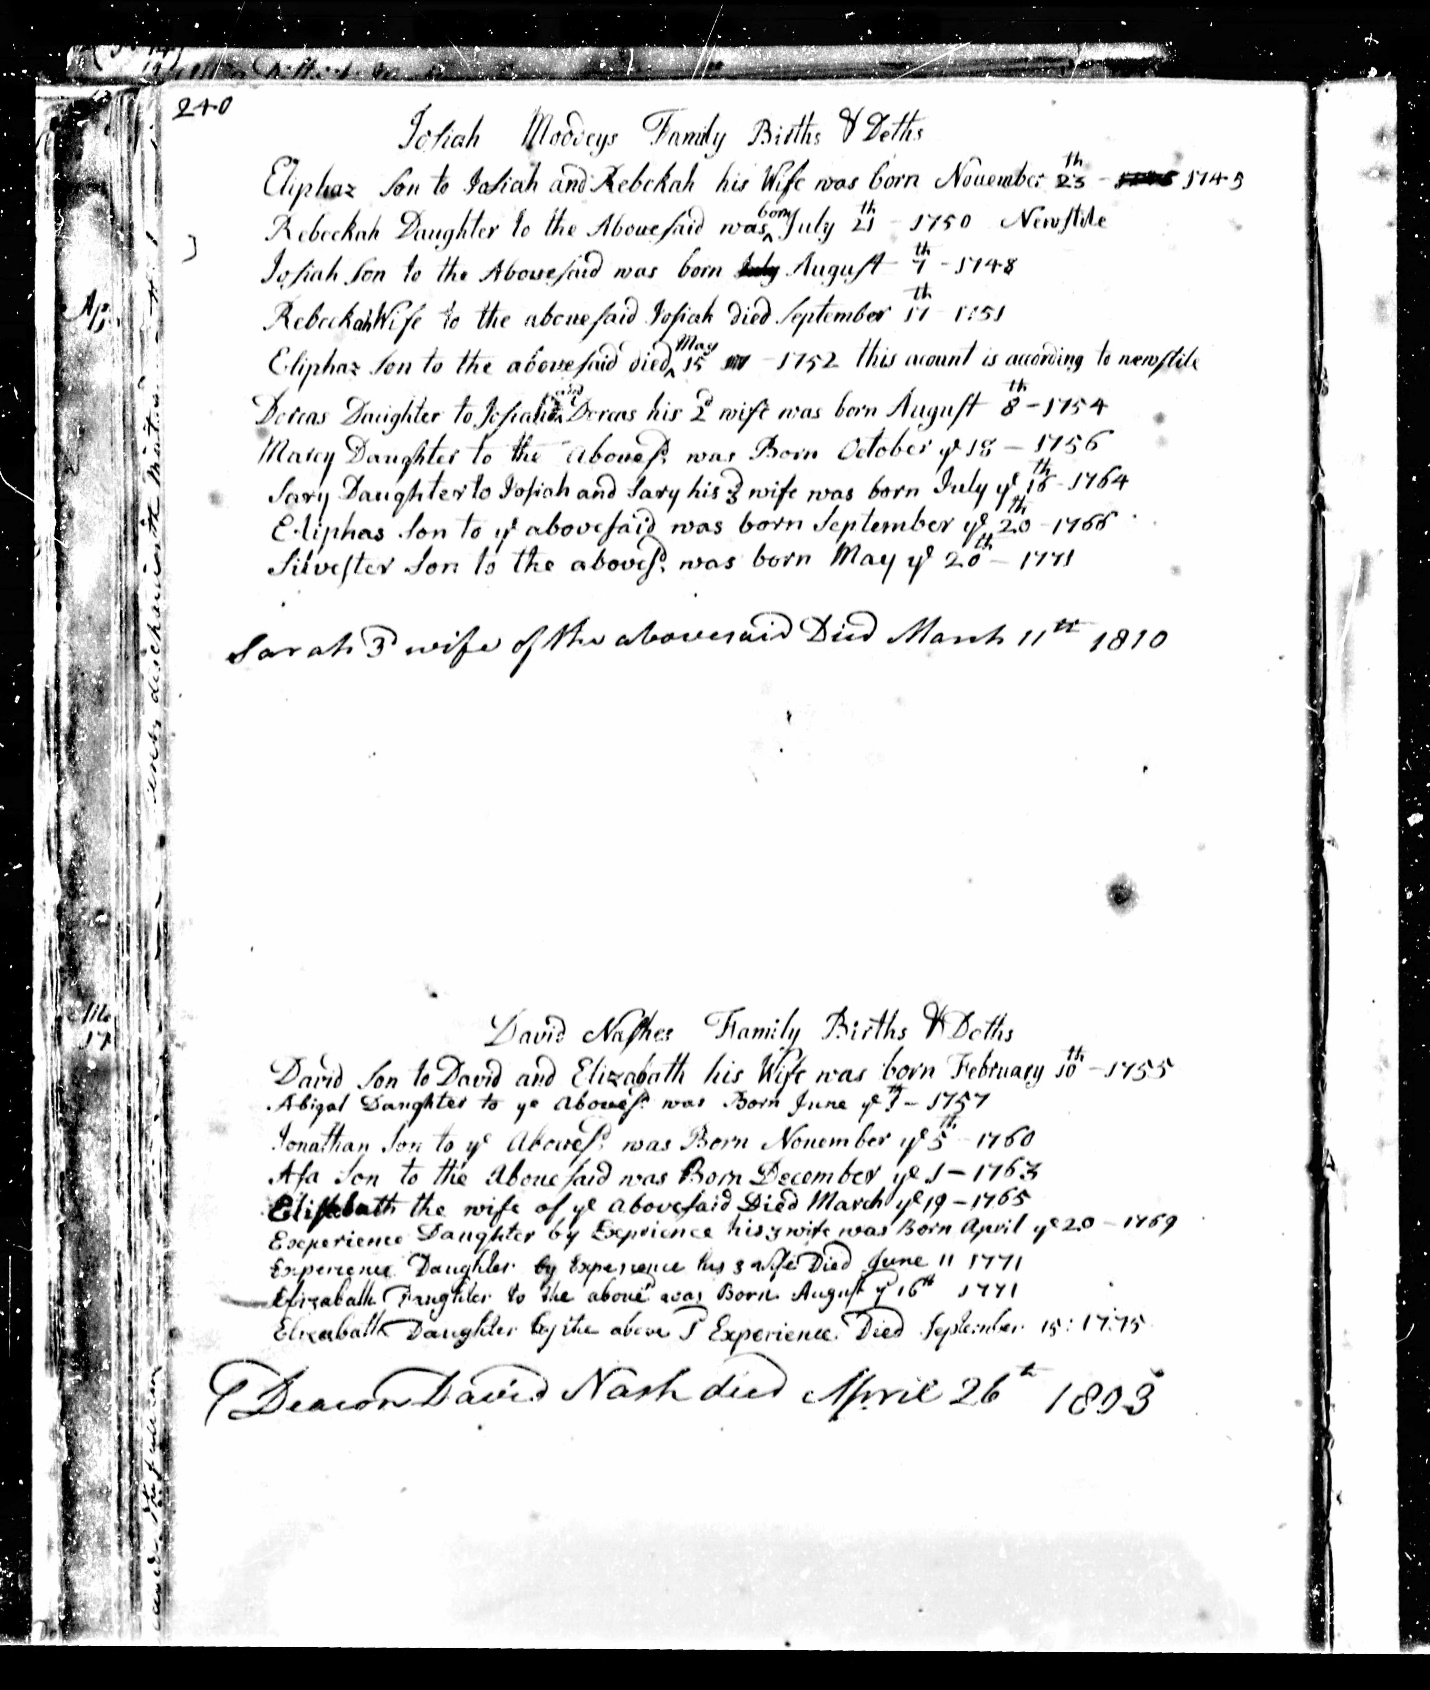 240
Josiah Moodeys Family Births & Deths
Eliphaz Son to Josiah and Rebekah his Wife was born November 23th - 1745
Rebeckah Daughter to the Abovesaid was born July 21th - 1750 Newstile
Josiah Son to the Abovesaid was born August 7th - 1748
Rebeckah Wife to the abovesaid Josiah died September 11th 1751
Eliphaz Son to the abovesaid died May 15 - 1752 this acount is according to newstile
Dorcas Daughter to Josiah and Dorcas his 2d wife was born August 8th - 1754
Marcy Daughter to the aboves.d was Born October ye 18 - 1756
Sary Daughter to Josiah and Sary his 3d wife was born July ye 16th - 1764
Eliphas Son to ye abovesaid was born September ye 20th - 1766
Silvester Son to the aboves.d was born May ye 20th - 1771
Sarah 3d wife of the abovesaid Died March 11th 1810
David Nashes Family Births & Deths
David Son to David and Elizabath his Wife was born February 10th - 1755
Abigal Daughter to ye aboves.d was Born June ye 7th - 1757
Jonathan Son to ye Aboves.d was Born November ye 5th - 1760
Asa Son to the Abovesaid was Born December ye 1 - 1763
Elisabath the wife of ye abovesaid Died March ye 19 - 1765
Experience Daughter by Exprience his 3 wife was Born April ye 20 - 1769
Experience Daughter by Experience his 3 wife Died June 11 1771
Elizabath Daughter to the above d was Born August ye 16th 1771
Elizabath Daughter by the above Sd Experience Died September 15: 1775
Deacon David Nash died April 26th 1803